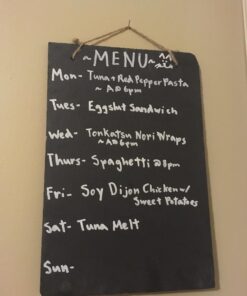 ~MENU~
Mon- Tuna + Red Pepper Pasta
~ A@6pm
Tues- Eggslut Sandwich
Wed- Tonkatsu Nori Wraps
~A@6pm
Thurs- Spaghetti @8pm
Fri- Soy Dijon Chicken w/
Sweet Potatoes
Sat- Tuna Melt
Sun-